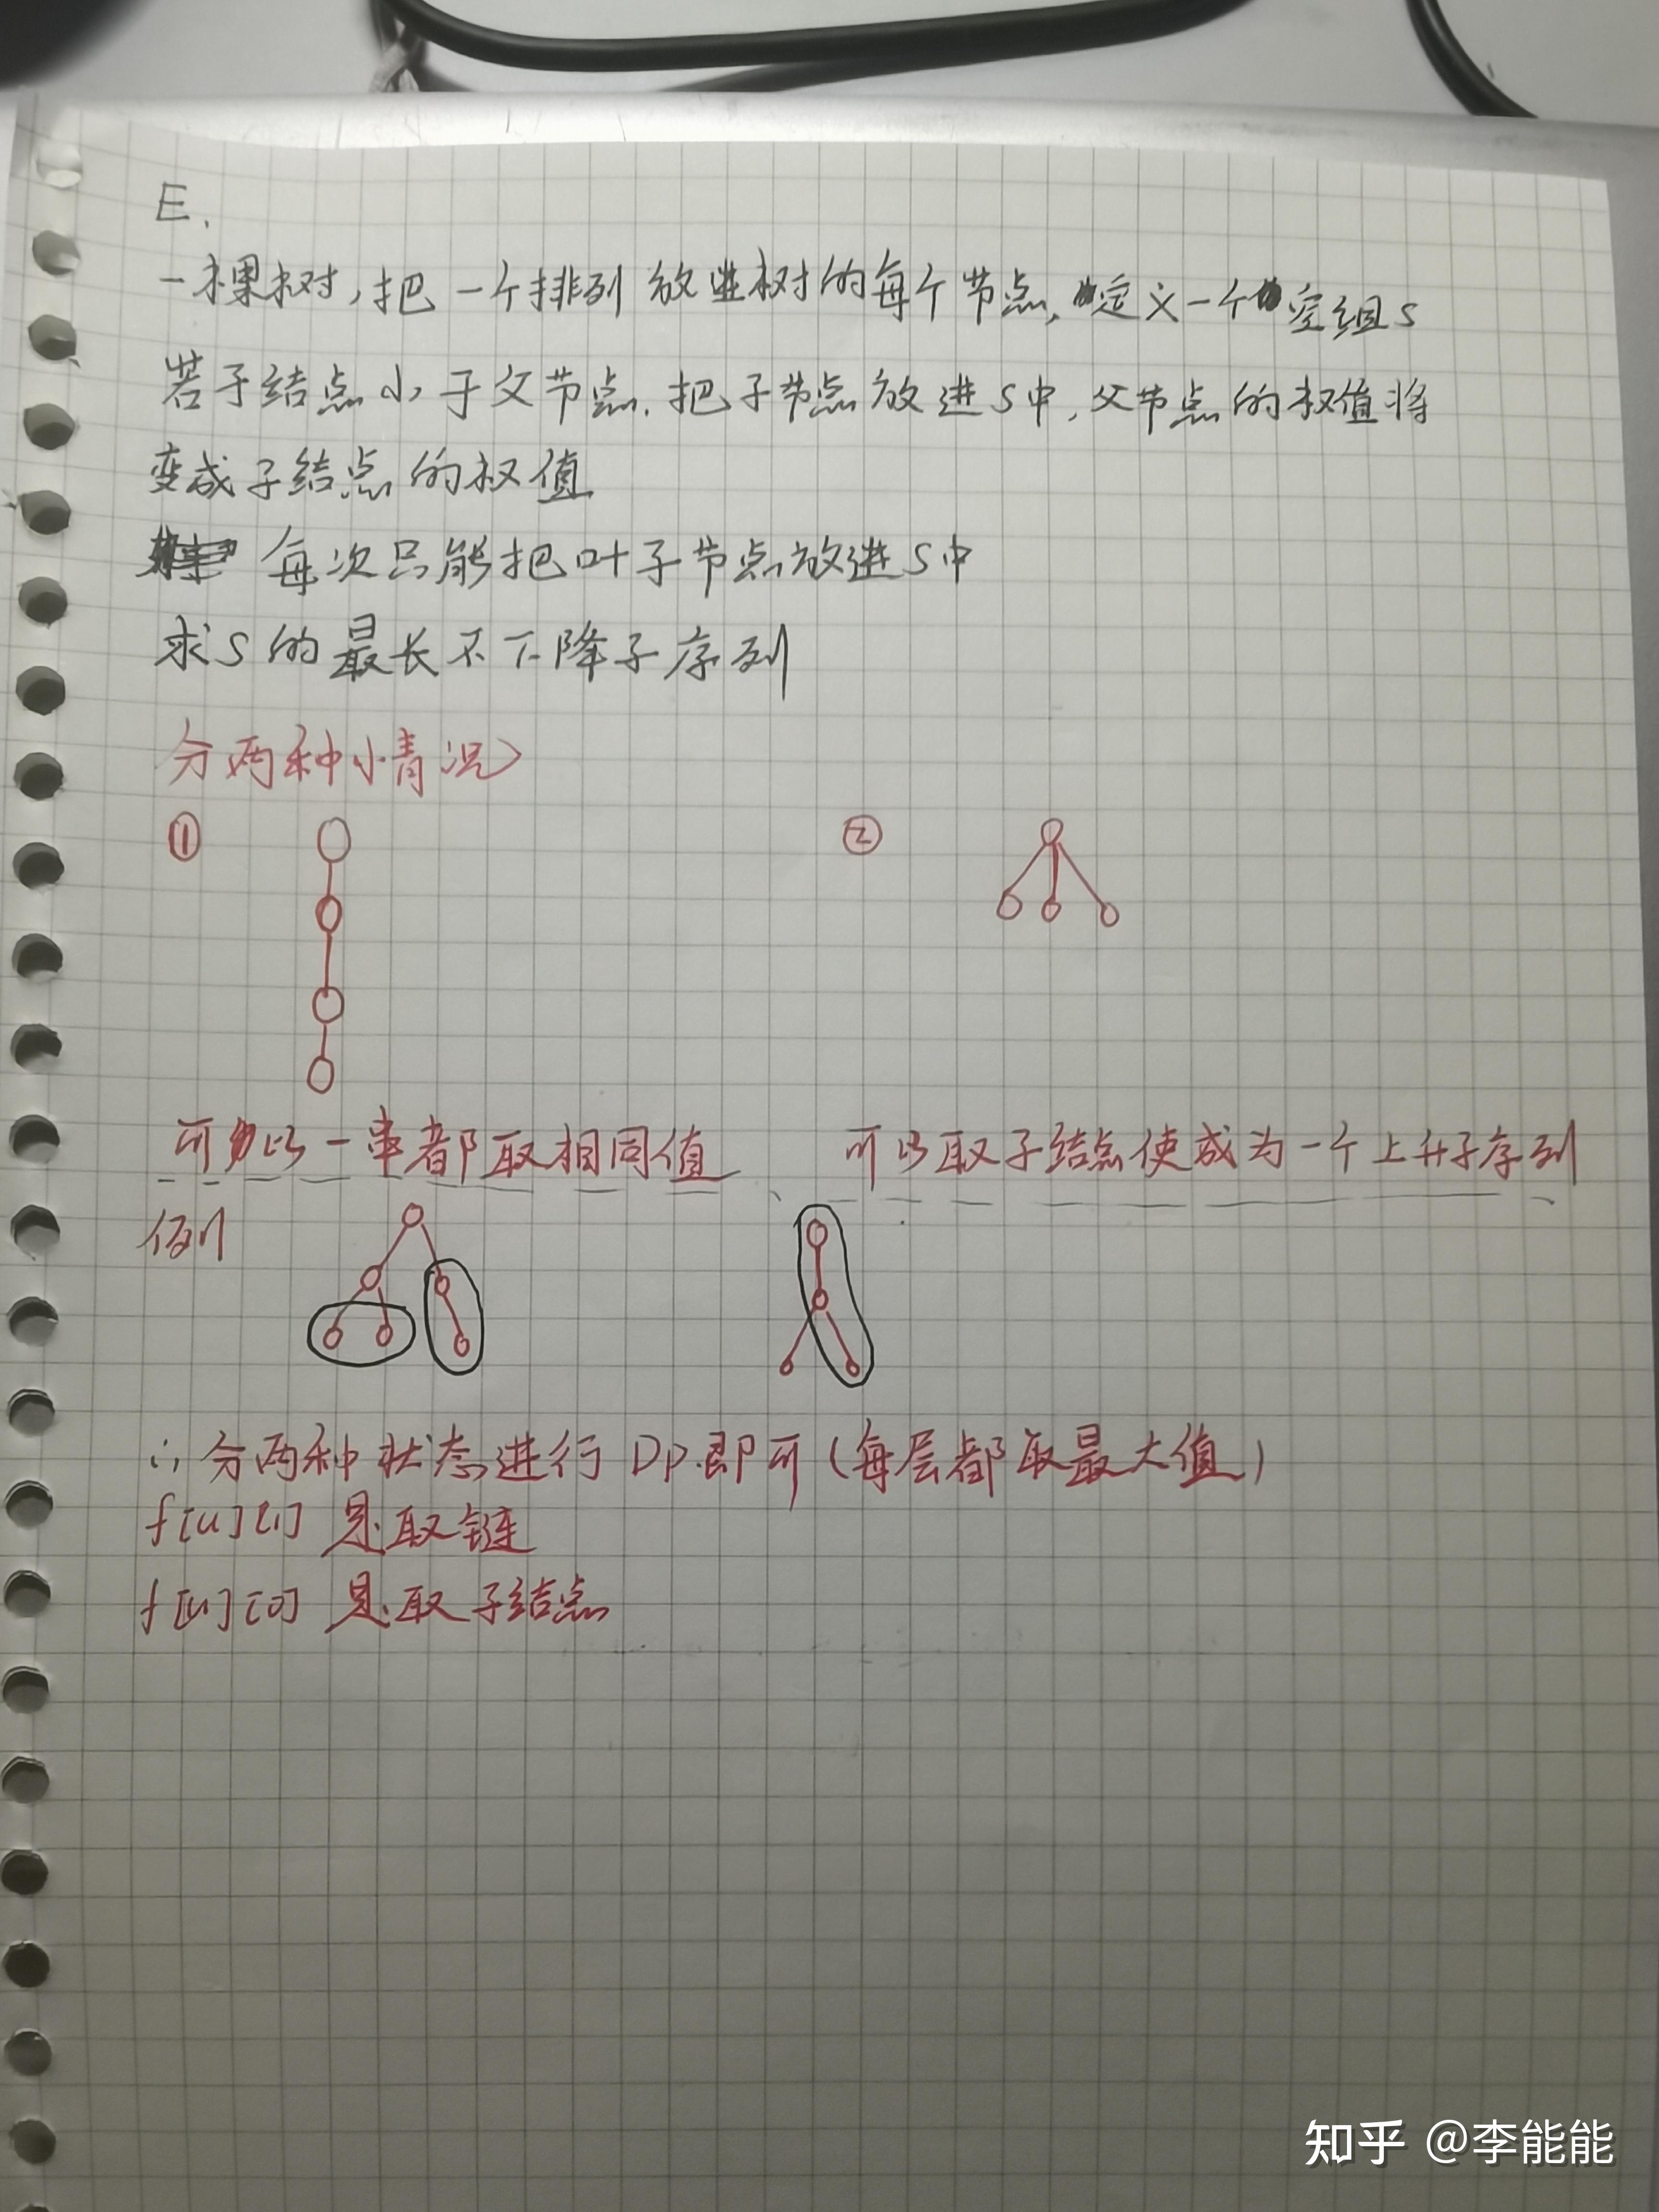 E.
一棵树,把一个排列放进树的每个节点,定义一个空组S
若子结点小于父节点.把子节点放进S中,父节点的权值将
变成子结点的权值
每次只能把叶子节点放进S中
求S的最长不下降子序列
分两种小情况
① ②
可以一串都取相同值 可以取子结点使成为一个上升子序列
例
∴分两种状态进行DP.即可(每层都取最大值)
f[u][1] 是取链
f[u][0] 是取子结点
知乎 @李能能